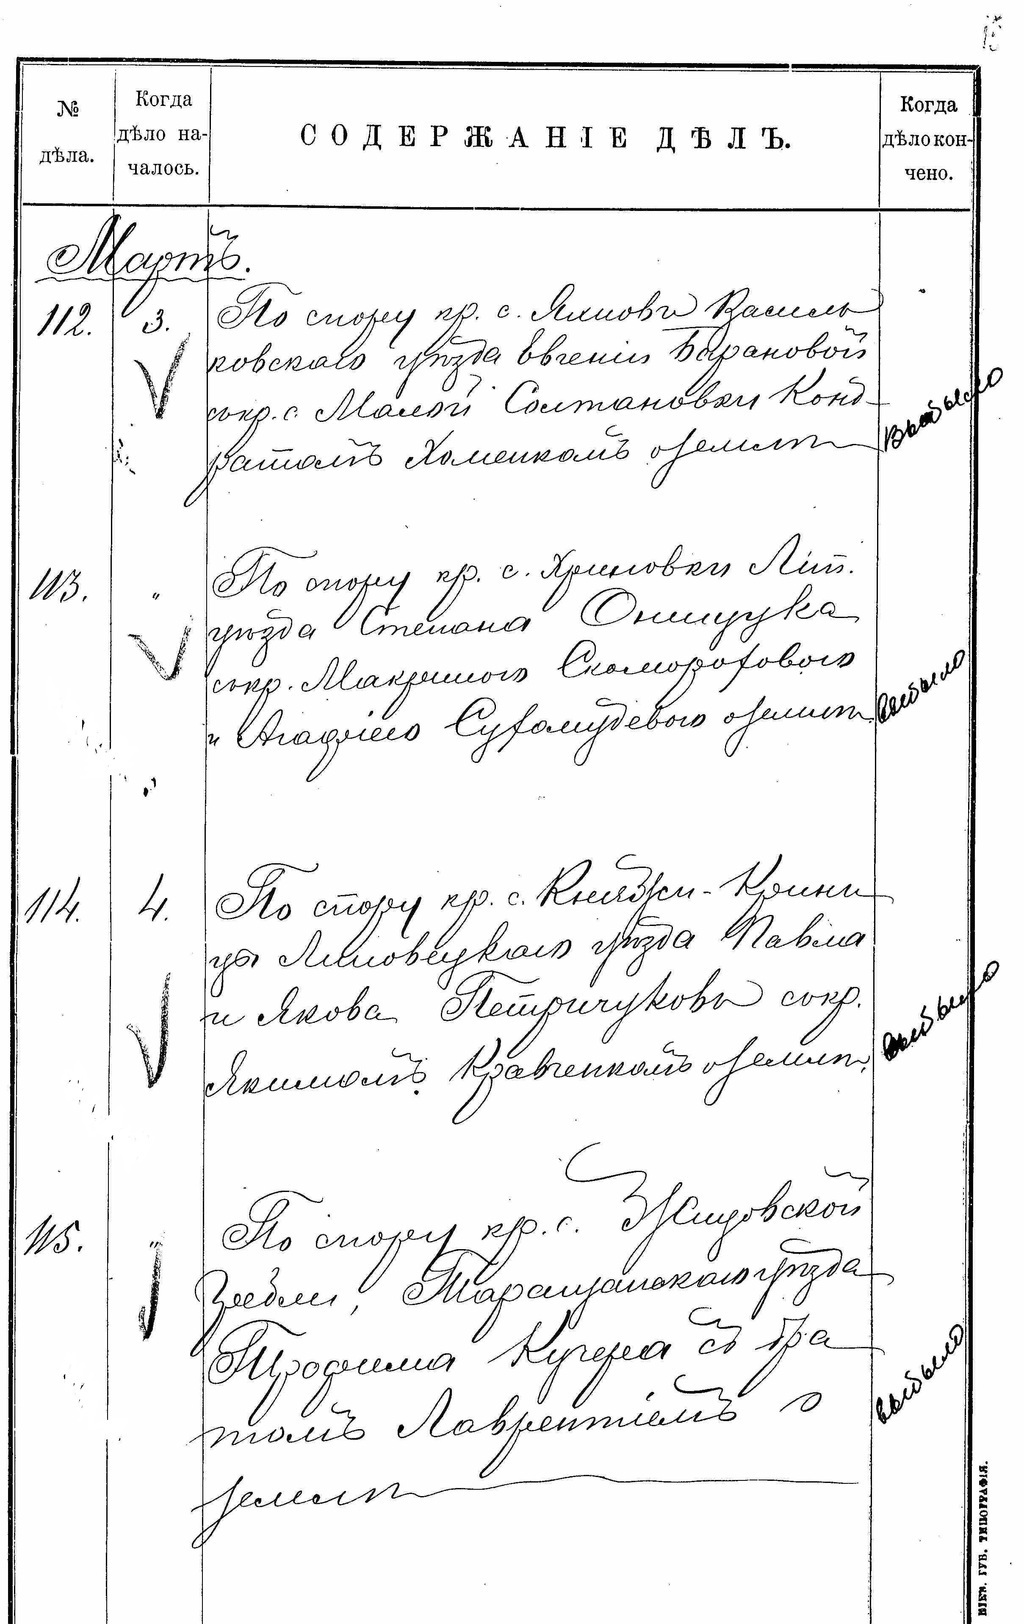 15
№ дѣла.
Когда дѣло на- чалось.
СОДЕРЖАНІЕ ДѢЛЪ.
Когда дѣло кон- чено.
Мартъ.
112. 3. По спору кр. с. Яхновъ Василь
ковскаго уѣзда Евгеніи Барановой
съ кр. с. Малой Солтановки Конд-
ратомъ Хоменкомъ о землѣ
Выбыло
113. " По спору кр. с. Хриновки Лип.
уѣзда Степана Онищука
съ кр. Макриною Скомороховою
и Агафіею Сухомудевою о землѣ
выбыло
114. 4. По спору кр. с. Княжи-Крини
цы Липовецкаго уѣзда Павла
и Якова Петричуковъ съ кр.
Якимомъ Кравченкомъ о землѣ
выбыло
115. " По спору кр. с. Жидовской
Гребли, Таращанскаго уѣзда
Трофима Кучера съ бра
томъ Лаврентіемъ о
землѣ
выбыло
КІЕВ. ГУБ. ТИПОГРАФІЯ.